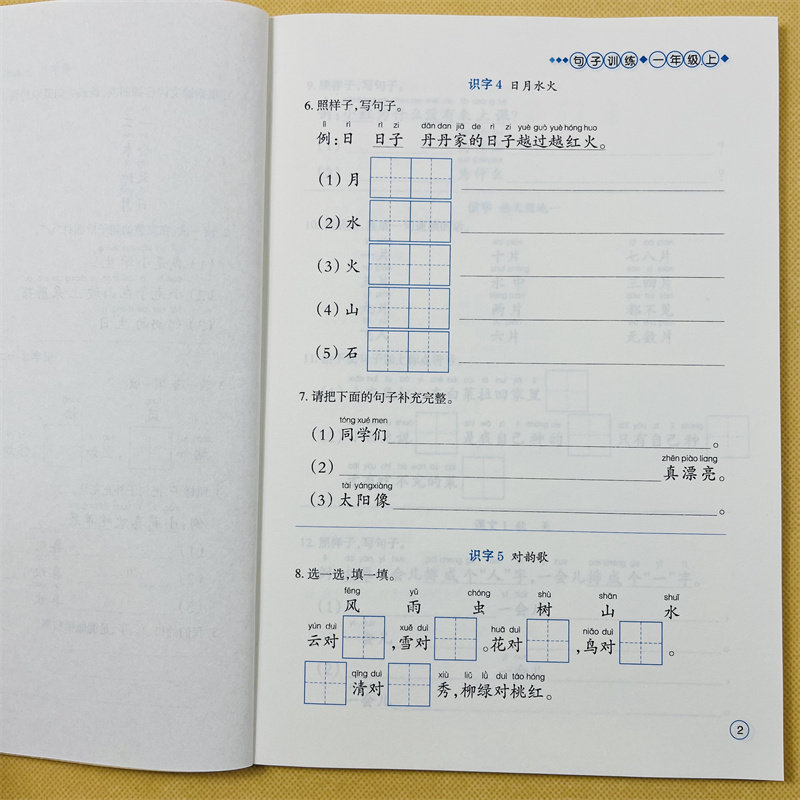 句子训练 一年级.上
识字 4 日月水火
6. 照样子,写句子。
lì rì rì zi dān dan jiā de rì zi yuè guò yuè hóng huo
例:日 日子 丹丹家的日子越过越红火。
(1) 月
(2) 水
(3) 火
(4) 山
(5) 石
7. 请把下面的句子补充完整。
tóng xué men
(1) 同学们 。
zhēn piào liang
(2) 真漂亮。
tài yángxiàng
(3) 太阳像 。
识字 5 对韵歌
8. 选一选,填一填。
fēng yǔ chóng shù shān shuǐ
风 雨 虫 树 山 水
yún duì xuě duì huā duì niǎo duì
云对 ,雪对 。花对 ,鸟对 。
qīng duì xiù liǔ lǜ duì táo hóng
清对 秀,柳绿对桃红。
2